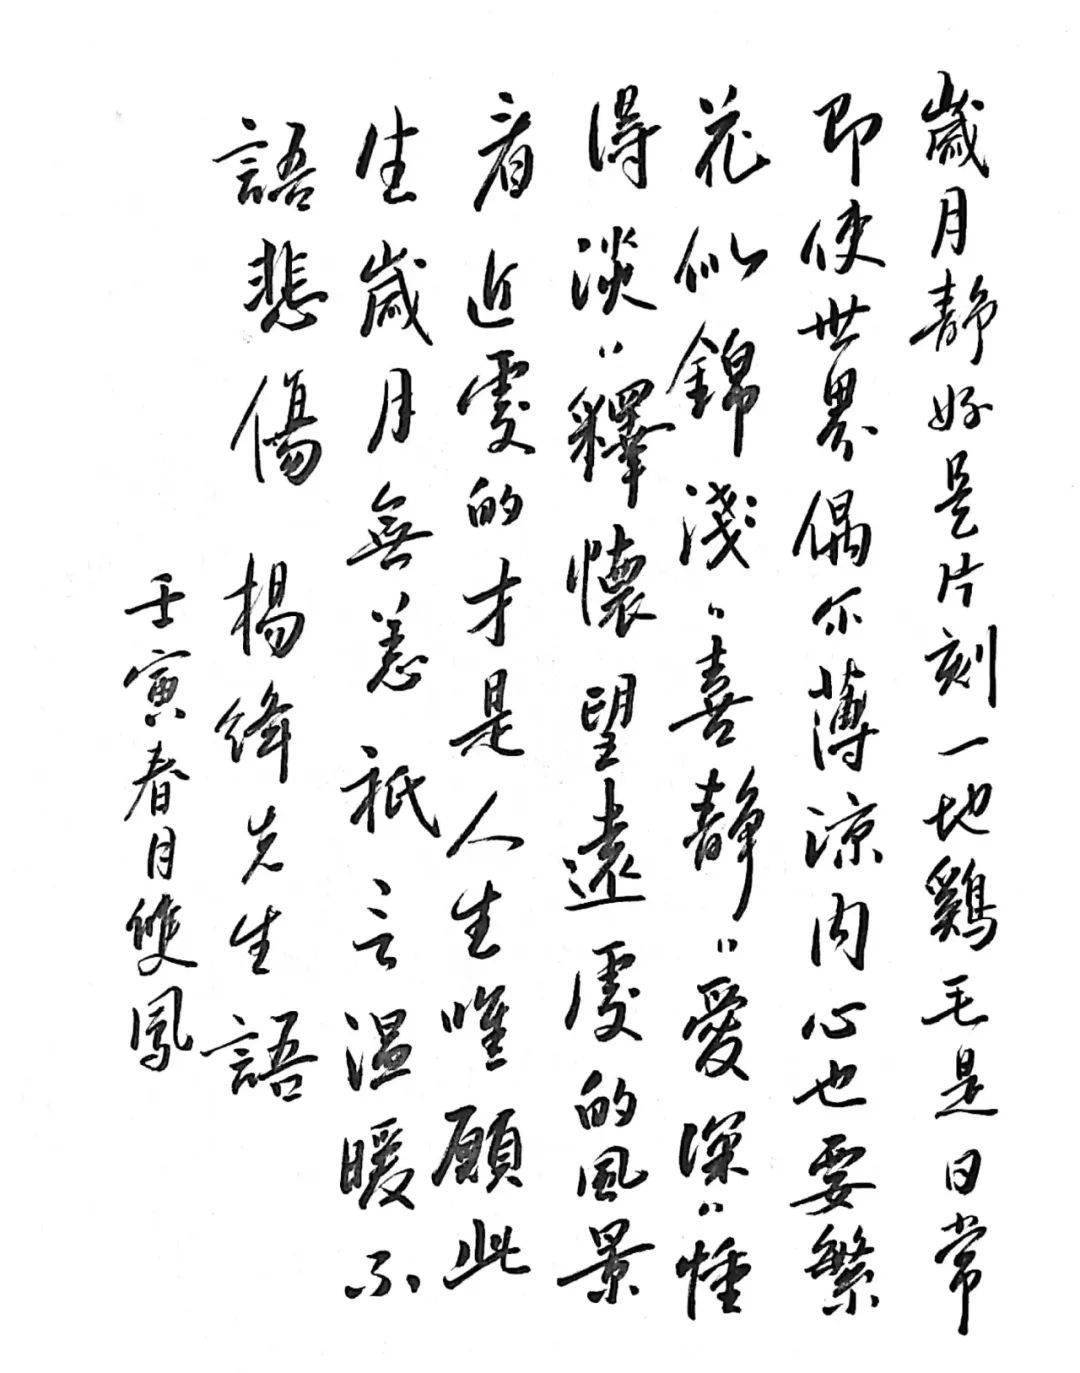 歲月靜好是片刻一地鷄毛是日常
即使世界偶尔薄涼内心也要繁
花似錦淺〃喜靜〃愛深〃懂
得淡〃釋懷望遠處的風景
看近處的才是人生唯願此
生歲月無恙衹言温暖不
語悲傷 楊絳先生語
壬寅春月雙鳳